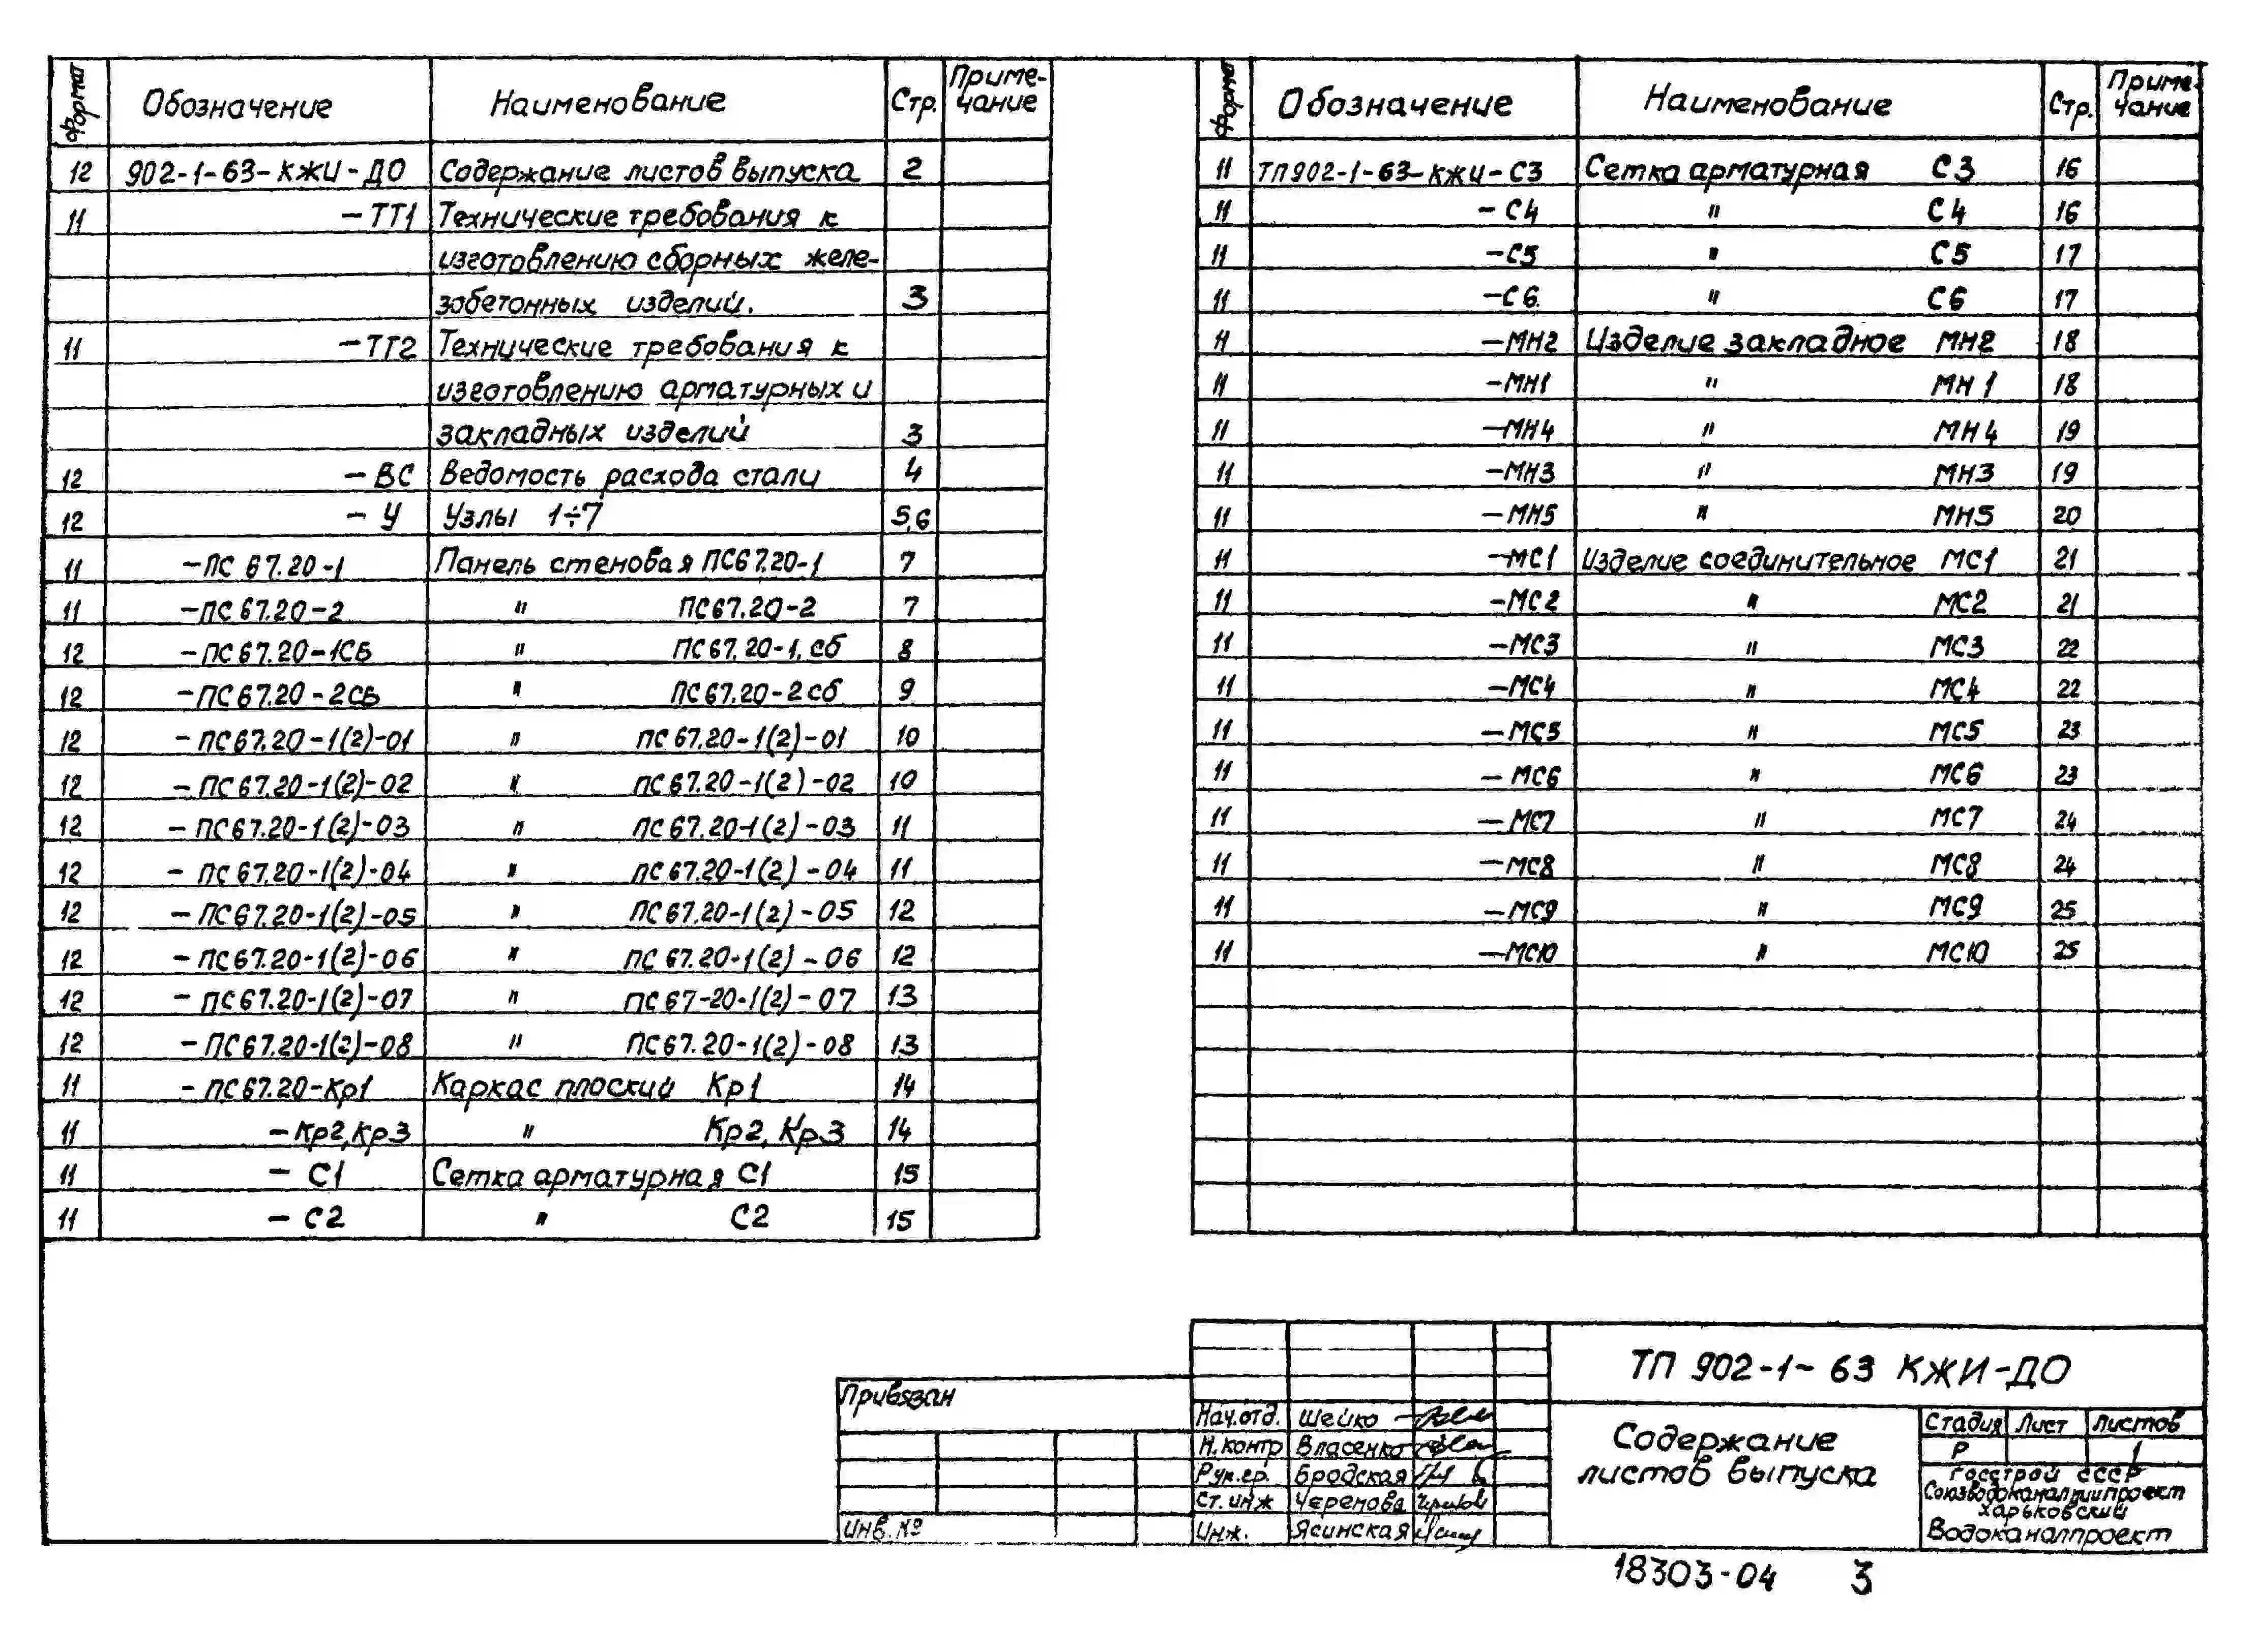 Формат Обозначение Наименование Стр. Приме-
чание
12 902-1-63-КЖИ-ДО Содержание листов выпуска 2
11 -ТТ1 Технические требования к
изготовлению сборных желе-
зобетонных изделий. 3
11 -ТТ2 Технические требования к
изготовлению арматурных и
закладных изделий 3
12 -ВС Ведомость расхода стали 4
12 -У Узлы 1÷7 5,6
11 -ПС 67.20-1 Панель стеновая ПС67.20-1 7
11 -ПС67.20-2 " ПС67.20-2 7
12 -ПС67.20-1СБ " ПС67.20-1.сб 8
12 -ПС67.20-2СБ " ПС67.20-2сб 9
12 -ПС67.20-1(2)-01 " ПС67.20-1(2)-01 10
12 -ПС67.20-1(2)-02 " ПС67.20-1(2)-02 10
12 -ПС67.20-1(2)-03 " ПС67.20-1(2)-03 11
12 -ПС67.20-1(2)-04 " ПС67.20-1(2)-04 11
12 -ПС67.20-1(2)-05 " ПС67.20-1(2)-05 12
12 -ПС67.20-1(2)-06 " ПС67.20-1(2)-06 12
12 -ПС67.20-1(2)-07 " ПС67-20-1(2)-07 13
12 -ПС67.20-1(2)-08 " ПС67.20-1(2)-08 13
11 -ПС67.20-Кр1 Каркас плоский Кр1 14
11 -Кр2,Кр3 " Кр2, Кр3 14
11 -С1 Сетка арматурная С1 15
11 -С2 " С2 15
Формат Обозначение Наименование Стр. Приме-
чание
11 ТП902-1-63-КЖИ-С3 Сетка арматурная С3 16
11 -С4 " С4 16
11 -С5 " С5 17
11 -С6. " С6 17
11 -МН2 Изделие закладное МН2 18
11 -МН1 " МН1 18
11 -МН4 " МН4 19
11 -МН3 " МН3 19
11 -МН5 " МН5 20
11 -МС1 Изделие соединительное МС1 21
11 -МС2 " МС2 21
11 -МС3 " МС3 22
11 -МС4 " МС4 22
11 -МС5 " МС5 23
11 -МС6 " МС6 23
11 -МС7 " МС7 24
11 -МС8 " МС8 24
11 -МС9 " МС9 25
11 -МС10 " МС10 25
Привязан
Инв.№
Нач.отд. Шейко
Н.контр Власенко
Рук.гр. Бродская
Ст.инж Черемова
Инж. Ясинская
ТП 902-1-63 КЖИ-ДО
Содержание
листов выпуска
Стадия Лист Листов
Р 1
Госстрой СССР
Союзводоканалниипроект
Харьковский
Водоканалпроект
18303-04 3